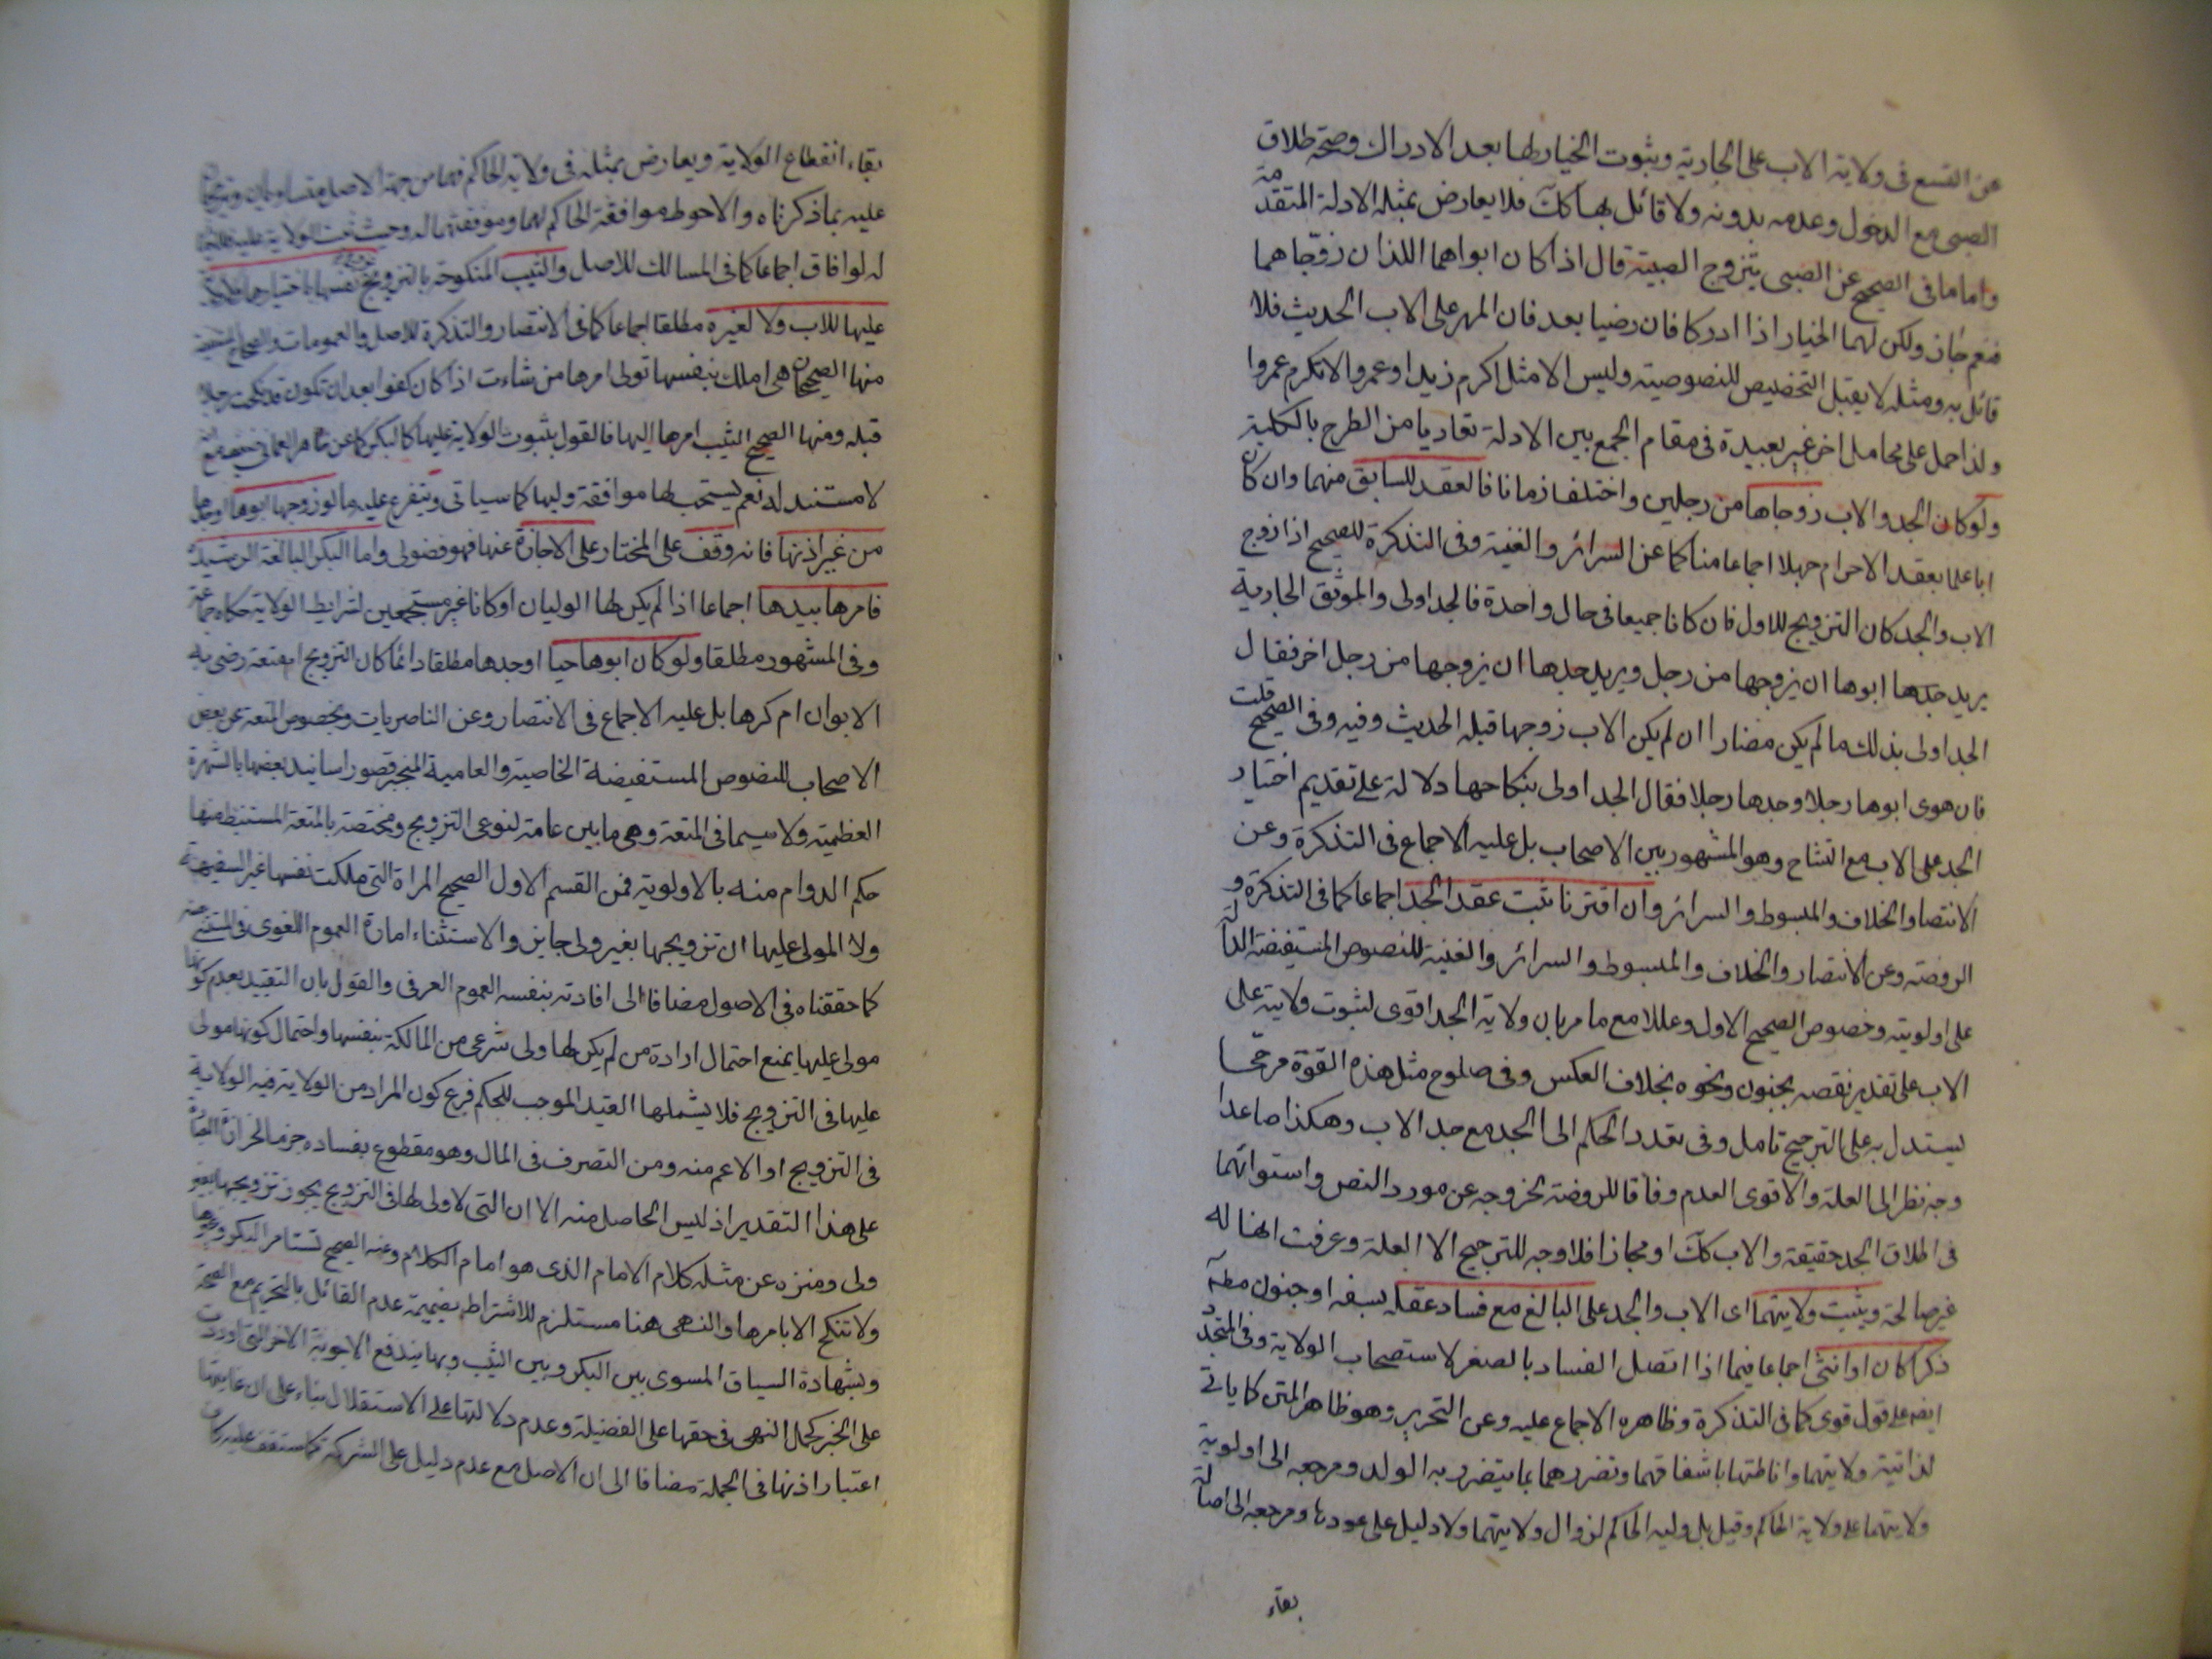 عن التسع فى ولاية الاب على الجارية وبثوت الخيار لها بعد الادراك وصحة طلاق
الصبى مع الدخول وعدمه بدونه ولا قائل بها كك فلا يعارض بمثله الادلة المتقدمة
واما ما فى الصحيح عن الصبى يتزوج الصبية قال اذا كان ابواهما اللذان زوّجاهما
فنعم جائز ولكن لهما الخيار اذا ادركا فان رضيا بعد فان المهر على الاب الحديث فلا
قائل به ومثله لا يقبل التخصيص للنصوصية وليس الا مثل اكرم زيدا او عمروا لا تكرم عمروا
ولذا حمل على محامل اخر غير بعيدة فى مقام الجمع بين الادلة تفاديا من الطرح بالكلية
ولو كان الجد والاب زوجاها من رجلين واختلفا زمانا فالعقد للسابق منهما وان كان
اباعلما بعقد الاخر ام جهلا اجماعا منا كما عن السرائر والغنية وفى التذكرة للصحيح اذا زوج
الاب والجد كان التزويج للاول فان كانا جميعا فى حال واحدة فالجد اولى والموثق الجارية
يريد ابوها ان يزوجها من رجل ويريد جدها ان يزوجها من رجل اخر فقال
الجد اولى بذلك ما لم يكن مضارا ان لم يكن الاب زوجها قبله الحديث وفيه وفى الصحيح قلت
فان هوى ابوها رجلا وجدها رجلا فقال الجد اولى بنكاحها دلالة على تقديم اختيار
الجد على الاب مع التشاح وهو المشهور بين الاصحاب بل عليه الاجماع فى التذكرة وعن
الانتصار والخلاف والمبسوط والسرائر وان اقترنا ثبت عقد الجد اجماعا كما فى التذكرة و
الروضة وعن الانتصار والخلاف والمبسوط والسرائر والغنية للنصوص المستفيضة الدالة
على اولويته وخصوص الصحيح الاول وعللا مع ما مر بان ولاية الجد اقوى لثبوت ولايته على
الاب على تقدير نقصه بجنون ونحوه بخلاف العكس وفى صلوح مثل هذه القوة مرجحا
يستدل به على الترجيح تامل وفى تعدد الحكم الى الجد مع جد الاب وهكذا صاعدا
وجه نظر الى العلة والاقوى العدم وفاقا للروضة لخروجه عن مورد النص واستوائهما
فى اطلاق الجد حقيقة والاب كك او مجازا فلا وجه للترجيح الا العلة وعرفت انها له
غير صالحة ويثبت ولايتهما اى الاب والجد على البالغ مع فساد عقله بسفه او جنون مطه
ذكرا كان او انثى اجماعا فيما اذا اتصل الفساد بالصغر لاستصحاب الولاية وفى المتجدد
ايضه على قول قوى كما فى التذكرة وظاهره الاجماع عليه وعن التحرير وهو ظاهر المتن كما ياتى
لذاتية ولايتهما واناطتها باشفاقهما وتضررهما بما يتضرر به الولد ومرجعه الى اولوية
ولايتهما على ولاية الحاكم وقيل بل وليه الحاكم لزوال ولايتهما ولا دليل على عودها ومرجعه الى اصالة
بقاء
بقاء انقطاع الولاية ويعارض بمثله فى ولاية الحاكم فهما من جهة الاصل متساويان
عليه بما ذكرناه والاحوط موافقة الحاكم لهما وموافقتهما له وحيث تثبت الولاية عليه
له لو افاق اجماعا كما فى المسالك للاصل والثيب المنكوحة بالتزويج نفسها باختيارها
عليها للاب ولا لغيره مطلقا اجماعا كما فى الانتصار والتذكرة للاصل والعمومات والصحاح
منها الصحيحان هى املك بنفسها تولى امرها من شاءت اذا كان كفوا بعد ان تكون قد نكحت رجلا
قبله ومنها الصحيح الثيب امرها اليها فالقول بثبوت الولاية عليها كالبكر كما عن ظاهر العمانى
لا مستند له نعم يستحب لها موافقة وليها كما سياتى ويتفرع عليه ما لو زوجها ابوها او جدها
من غير اذنها فانه وقف على المختار على الاجازة عنها فهو فضولى واما البكر البالغة الرشيدة
فامرها بيدها اجماعا اذا لم يكن لها الوليان او كانا غير مستجمعين لشرايط الولاية حكاه جماعة
وفى المشهور مطلقا ولو كان ابوها حيا او جدها مطلقا دائما كان التزويج ام متعة رضى به
الابوان ام كرها بل عليه الاجماع فى الانتصار وعن الناصريات وبخصوص المتعة عن بعض
الاصحاب للنصوص المستفيضة الخاصية والعامية المنجبر قصور اسانيد بعضها بالشهرة
العظيمة ولا سيما فى المتعة وهى ما بين عامة لنوعى التزويج ومختصة بالمتعة المستنبط منها
حكم الدوام منه بالاولوية فمن القسم الاول الصحيح المراة التى ملكت نفسها غير السفيهة
ولا المولى عليها ان تزويجها بغير ولى جايز والاستثناء امارة العموم اللغوى فى المستثنى منه
كما حققناه فى الاصول مضافا الى افادته بنفسه العموم العرفى والقول بان التقييد بعدم كونها
مولى عليها يمنع احتمال ارادة من لم يكن لها ولى شرعى من المالكة بنفسها واحتمال كونها مولى
عليها فى التزويج فلا يشملها القيد الموجب للحكم فرع كون المراد من الولاية فيه الولاية
فى التزويج او الاعم منه ومن التصرف فى المال وهو مقطوع بفساده جزما لحزازة العبارة
على هذا التقدير اذ ليس الحاصل منه الا ان التى لا ولى لها فى التزويج يجوز تزويجها بغير
ولى ومنزه عن مثله كلام الامام الذى هو امام الكلام وعنه الصحيح تستامر البكر وغيرها
ولا تنكح الا بامرها والنهى هنا مستلزم للاشتراط بضميمة عدم القائل بالتحريم مع الصحة
وبشهادة السياق المسوى بين البكر وبين الثيب وبها يندفع الاجوبة الاخر التى اوردت
على الخبر كحمل النهى فى حقها على الفضيلة وعدم دلالتها على الاستقلال بناء على ان غايتها
اعتبار اذنها فى الجملة مضافا الى ان الاصل مع عدم دليل على الشركة كما ستقف عليه كان